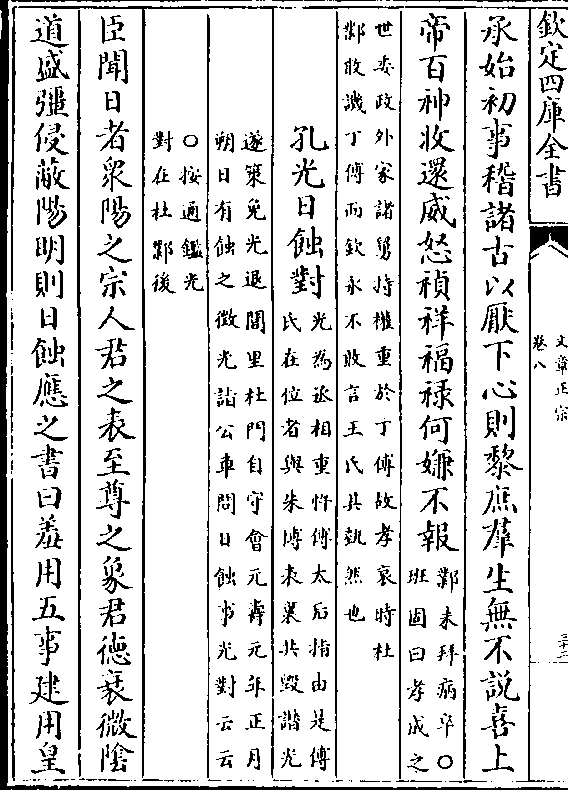 欽定四庫全書
文章正宗
卷八
三十二
承始初事稽諸古以厭下心則黎庶羣生無不說喜上
帝百神收還威怒禎祥福祿何嫌不報
鄴未拜病卒○
班固曰孝成之
世委政外家諸舅持權重於丁傅故孝哀時杜
鄴敢譏丁傅而欽永不敢言王氏其勢然也
孔光日蝕對
光為丞相重忤傅太后指由是傅
氏在位者與朱博表裏共毀譖光
遂策免光退閭里杜門自守會元壽元年正月
朔日有蝕之徵光詣公車問日蝕事光對云云
○按通鑑光
對在杜鄴後
臣聞日者衆陽之宗人君之表至尊之象君德衰微陰
道盛彊侵蔽陽明則日蝕應之書曰羞用五事建用皇